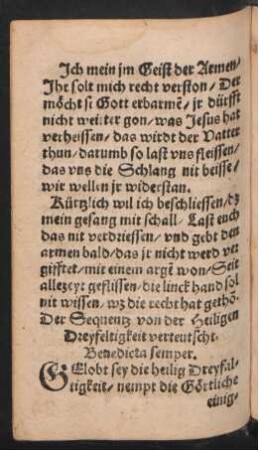 Jch mein jm Geist der Armen/
Jhr solt mich recht verston/ Der
möcht si Gott erbarmē/ jr dürfft
nicht weitter gon/ was Jesus hat
verheissen/ das wirdt der Vatter
thun/ darumb so last vns fleissen/
das vns die Schlang nit beisse/
wir wellen jr widerstan.
Kürtzlich wil ich beschliessen/ dz
mein gesang mit schall/ Last euch
das nit verdriessen/ vnd gebt den
armen bald/ das jr nicht werd ver
gifftet/ mit einem argē won/ Seit
allezeyt geflissen/ die linck hand sol
nit wissen/ wz die recht hat gethō.
Der Sequentz von der Heiligen
Dreyfeltigkeit verteutscht.
Benedicta semper.
GElobt sey die heilig Dreyfal-
tigkeit/ nempt die Göttliche
einig-